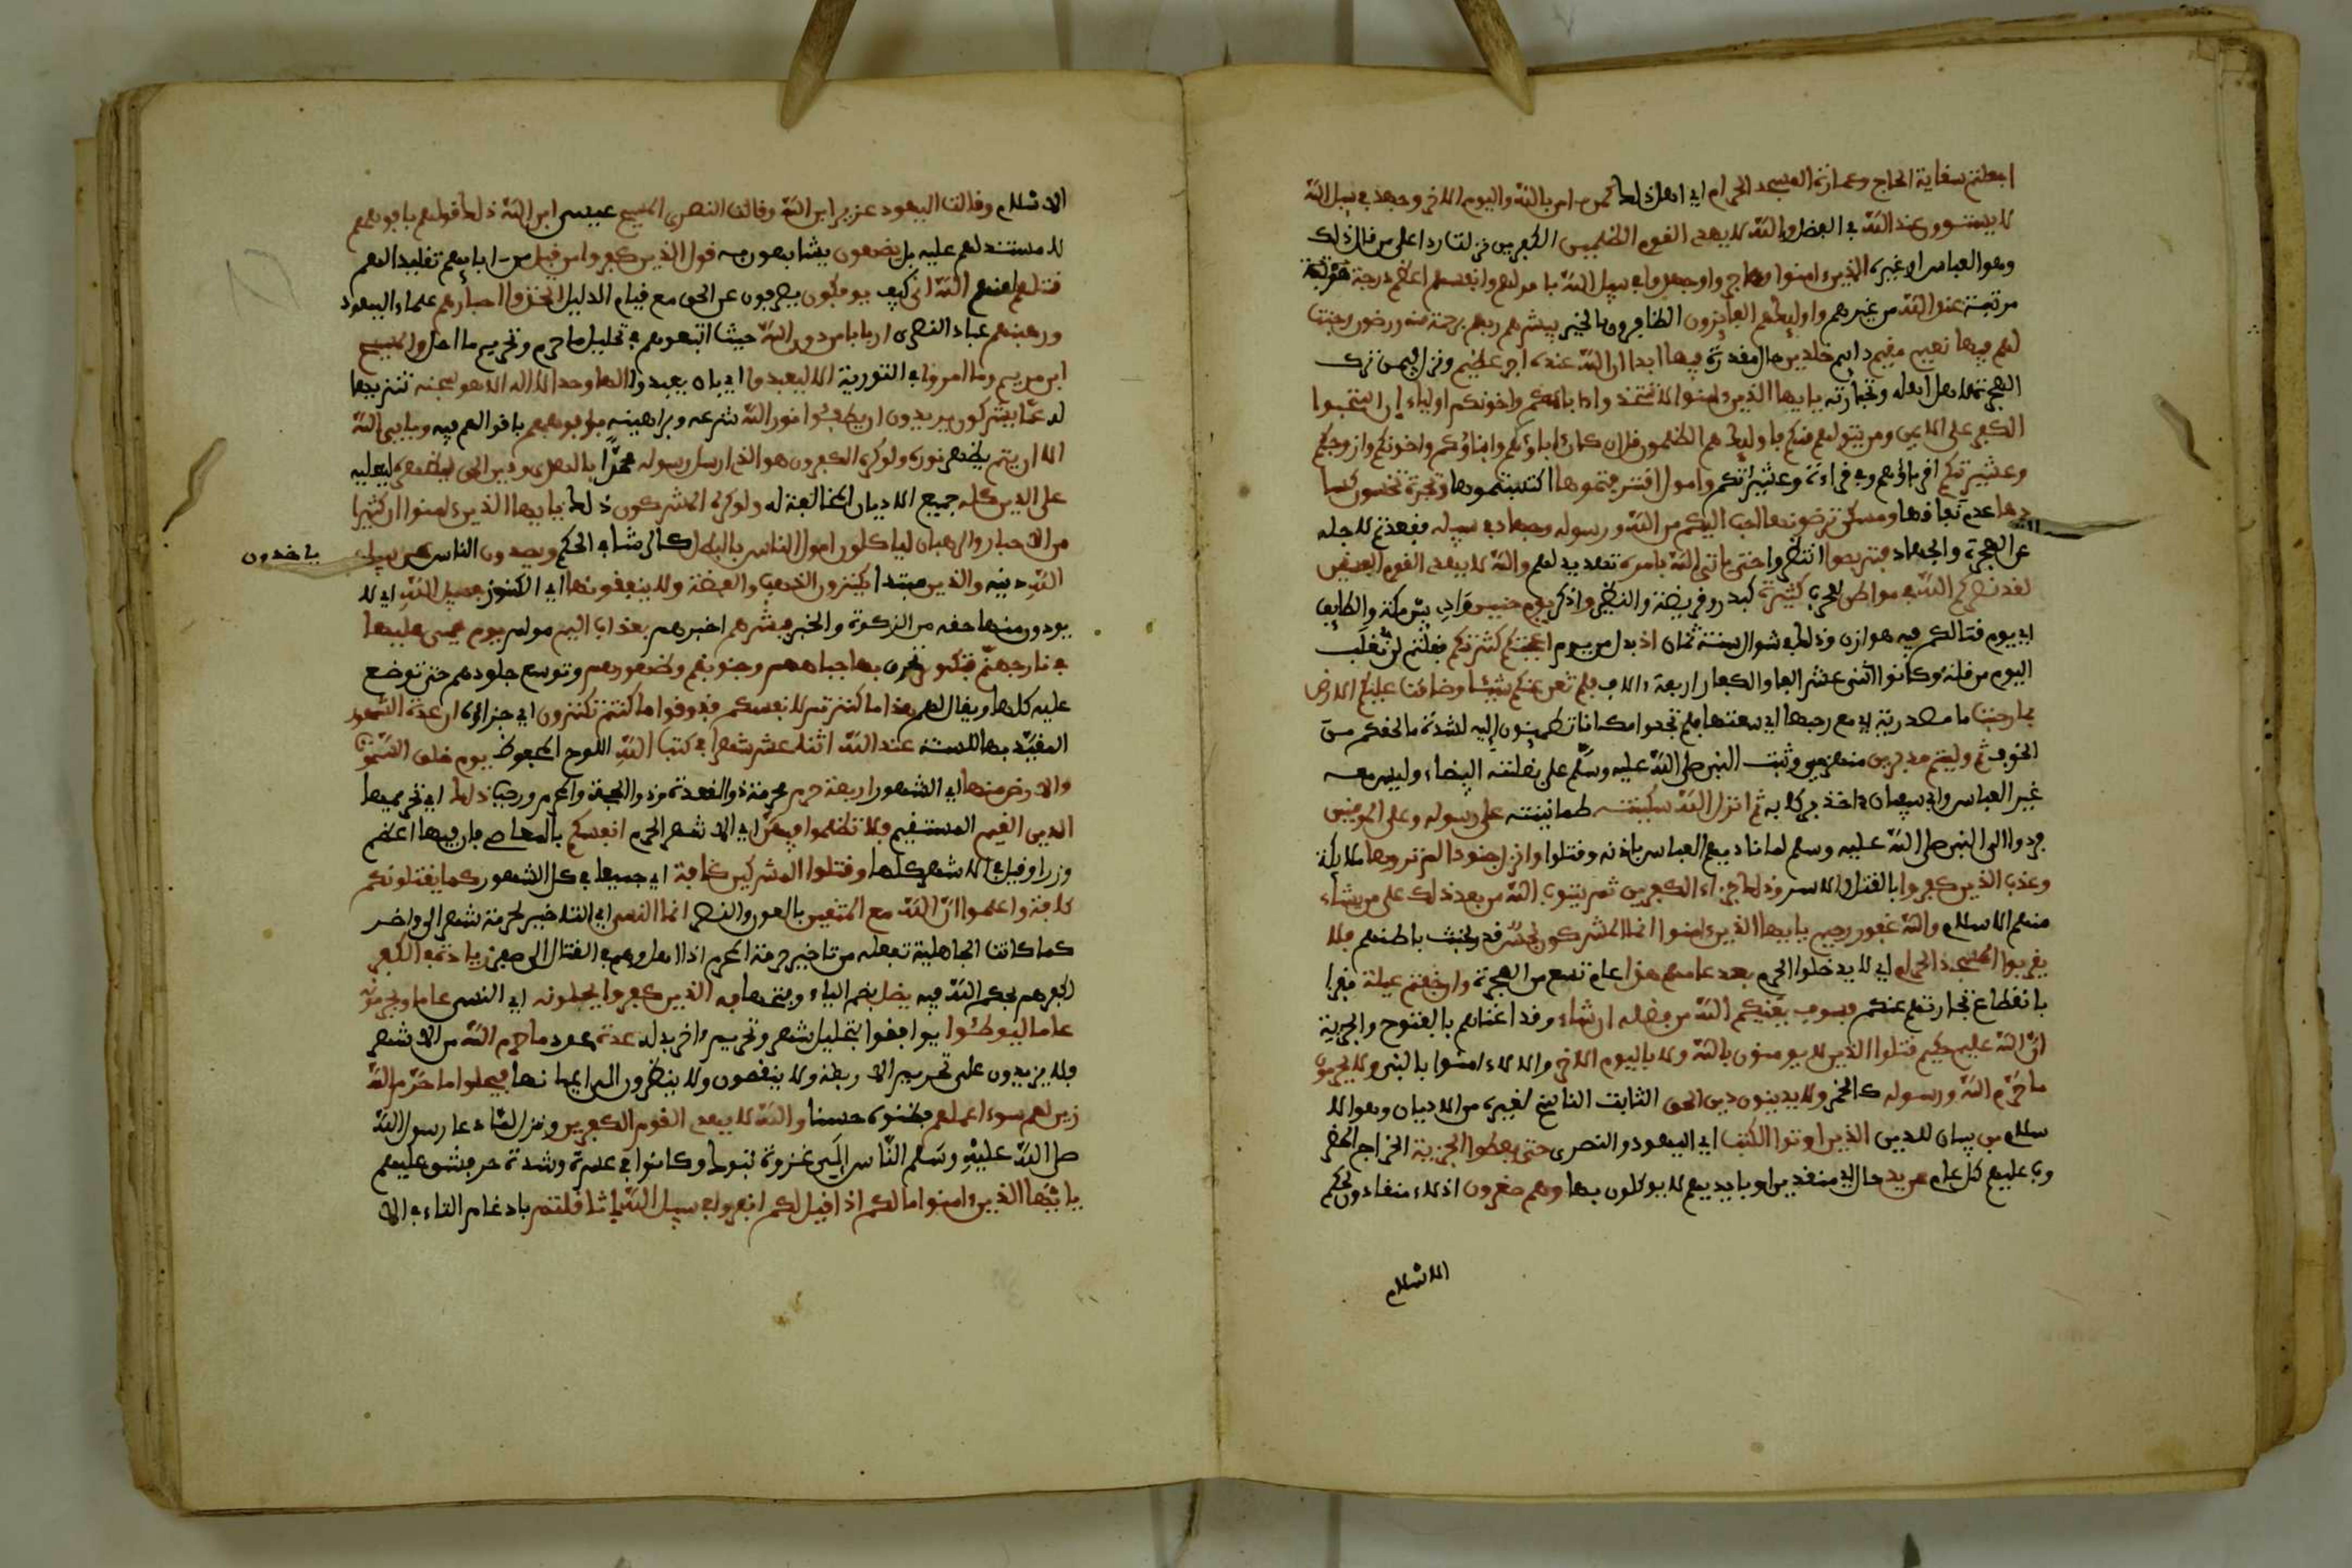 اجعلتم سقاية الحاج وعمارة المسجد الحرام اي اهل ذلك كمن امن بالله واليوم الاخر وجهد في سبيل الله
لا يستوون عند الله في الفضل والله لا يهدي القوم الظلمين الكفرين نزلت ردا على من قال ذلك
وهو العباس او غيره الذين ءامنوا وهاجروا وجهدوا في سبيل الله بامولهم وانفسهم اعظم درجة
مرتبة عند الله من غيرهم واوليك هم الفايزون الظافرون بالخير يبشرهم ربهم برحمة منه ورضون وجنت
لهم فيها نعيم مقيم دايم خلدين حال مقدرة فيها ابدا ان الله عنده اجر عظيم ونزل فيمن ترك
الهجرة لاجل اهله وتجارته يايها الذين ءامنوا لا تتخذوا اباءكم واخونكم اولياء ان استحبوا
الكفر على الايمن ومن يتولهم منكم فاوليك هم الظلمون قل ان كان اباؤكم وابناؤكم واخونكم وازوجكم
وعشيرتكم اقرباؤكم وفي قراءة وعشيراتكم وامول اقترفتموها اكتسبتموها وتجرة تخشون كسا
دها عدم نفاقها ومسكن ترضونها احب اليكم من الله ورسوله وجهاد في سبيله فقعدتم لاجله
عن الهجرة والجهاد فتربصوا انتظروا حتى ياتي الله بامره تهديد لهم والله لا يهدي القوم الفسقين
لقد نصركم الله في مواطن للحرب كثيرة كبدر وقريظة والنضير واذكر يوم حنين واد بين مكة والطايف
اي يوم قتالكم فيه هوازن وذلك في شوال سنة ثمان اذ بدل من يوم اعجبتكم كثرتكم فقلتم لن نغلب
اليوم من قلة وكانوا اثنى عشر الفا والكفار اربعة ءالاف فلم تغن عنكم شيئا وضاقت عليكم الارض
بما رحبت ما مصدرية اي مع رحبها اي سعتها فلم تجدوا مكانا تطمينون اليه لشدة ما لحقكم من
الخوف ثم وليتم مدبرين منهزمين وثبت النبي صلى الله عليه وسلم على بغلته البيضاء وليس معه
غير العباس وابي سفيان ءاخذ بركابه ثم انزل الله سكينته طمانينته على رسوله وعلى المومنين
فردوا الى النبي صلى الله عليه وسلم لما نادىهم العباس باذنه وقتلوا وانزل جنودا لم تروها ملايكة
وعذب الذين كفروا بالقتل والاسر وذلك جزاء الكفرين ثم يتوب الله من بعد ذلك على من يشاء
منهم الاسلام والله غفور رحيم يايها الذين ءامنوا انما المشركون نجس قذر لخبث باطنهم فلا
يقربوا المسجد الحرام اي لا يدخلوا الحرم بعد عامهم هذا عام تسع من الهجرة وان خفتم عيلة فقرا
بانقطاع تجارتهم عنكم فسوف يغنيكم الله من فضله ان شاء وقد اغناهم بالفتوح والجزية
ان الله عليم حكيم قتلوا الذين لا يومنون بالله ولا باليوم الاخر والا لامنوا بالنبي ولا يحرمون
ما حرم الله ورسوله كالخمر ولا يدينون دين الحق الثابت الناسخ لغيره من الاديان وهو الا
سلام من بيان للذين الذين اوتوا الكتب اي اليهود والنصرى حتى يعطوا الجزية الخراج المضر
وب عليهم كل عام عن يد حال اي منقدين او بايديهم لا يوكلون بها وهم صغرون اذلاء منقادون لحكم
الاسلام
الاسلام وقالت اليهود عزير ابن الله وقالت النصرى المسيح عيسى ابن الله ذلك قولهم بافوههم
لا مستند لهم عليه بل يضهون يشابهون به قول الذين كفروا من قبل من ابايهم تقليدا لهم
قتلهم لعنهم الله انى كيف يوفكون يصرفون عن الحق مع قيام الدليل اتخذوا احبارهم علماء اليهود
ورهبنهم عباد النصرى اربابا من دون الله حيث اتبعوهم في تحليل ما حرم وتحريم ما احل والمسيح
ابن مريم وما امروا في التورية الا ليعبدوا اي بان يعبدوا الها وحدا لا اله الا هو سبحنه تنزيها
له عما يشركون يريدون ان يطفئوا نور الله شرعه وبراهينه بافوههم باقوالهم فيه ويابى الله
الا ان يتم يظهر نوره ولو كره الكفرون هو الذي ارسل رسوله محمدا بالهدى ودين الحق ليظهره ليعليه
على الدين كله جميع الاديان المخالفة له ولو كره المشركون ذلك يايها الذين ءامنوا ان كثيرا
من الاحبار والرهبان لياكلون امول الناس بالبطل كالرشا في الحكم ويصدون الناس عن سبيل
ياخذون
الله دينه والذين مبتدا يكنزون الذهب والفضة ولا ينفقونها اي الكنوز في سبيل الله اي لا
يودون منها حقه من الزكوة والخبر فبشرهم اخبرهم بعذاب اليم مولم يوم يحمى عليها
في نار جهنم فتكوى تحرق بها جباههم وجنوبهم وظهورهم وتوسع جلودهم حتى توضع
عليه كلها ويقال لهم هذا ما كنزتم لانفسكم فذوقوا ما كنتم تكنزون اي جزاؤه ان عدة الشهور
المقيد بها للسنة عند الله اثنا عشر شهرا في كتب الله اللوح المحفوظ يوم خلق السموت
والارض منها اي الشهور اربعة حرم محرمة ذو القعدة وذو الحجة والمحرم ورجب ذلك اي تحريمها
الدين القيم المستقيم فلا تظلموا فيهن اي الاشهر الحرم انفسكم بالمعاصي فانها فيها اعظم
وزرا وقيل في الاشهر كلها وقتلوا المشركين كافة اي جميعا في كل الشهور كما يقتلونكم
كافة واعلموا ان الله مع المتقين بالعون والنصر انما النسي اي التاخير لحرمة شهر الى ءاخر
كما كانت الجاهلية تفعله من تاخير حرمة المحرم اذا اهل وهم في القتال الى صفر زيادة في الكفر
لكفرهم بحكم الله فيه يضل بضم الياء وفتحها به الذين كفروا يحلونه اي النسي عاما ويحرمونه
عاما ليوطئوا يوافقوا بتحليل شهر وتحريم ءاخر بدله عدة عدد ما حرم الله من الاشهر
فلا يزيدون على تحريم الاربعة ولا ينقصون ولا ينظرون الى اعيانها فيحلوا ما حرم الله
زين لهم سوء اعملهم فظنوه حسنا والله لا يهدي القوم الكفرين ونزل لما دعا رسول الله
صلى الله عليه وسلم الناس الى غزوة تبوك وكانوا في عسرة وشدة حر فشق عليهم
يايها الذين ءامنوا ما لكم اذا قيل لكم انفروا في سبيل الله اثاقلتم بادغام التاء في الا